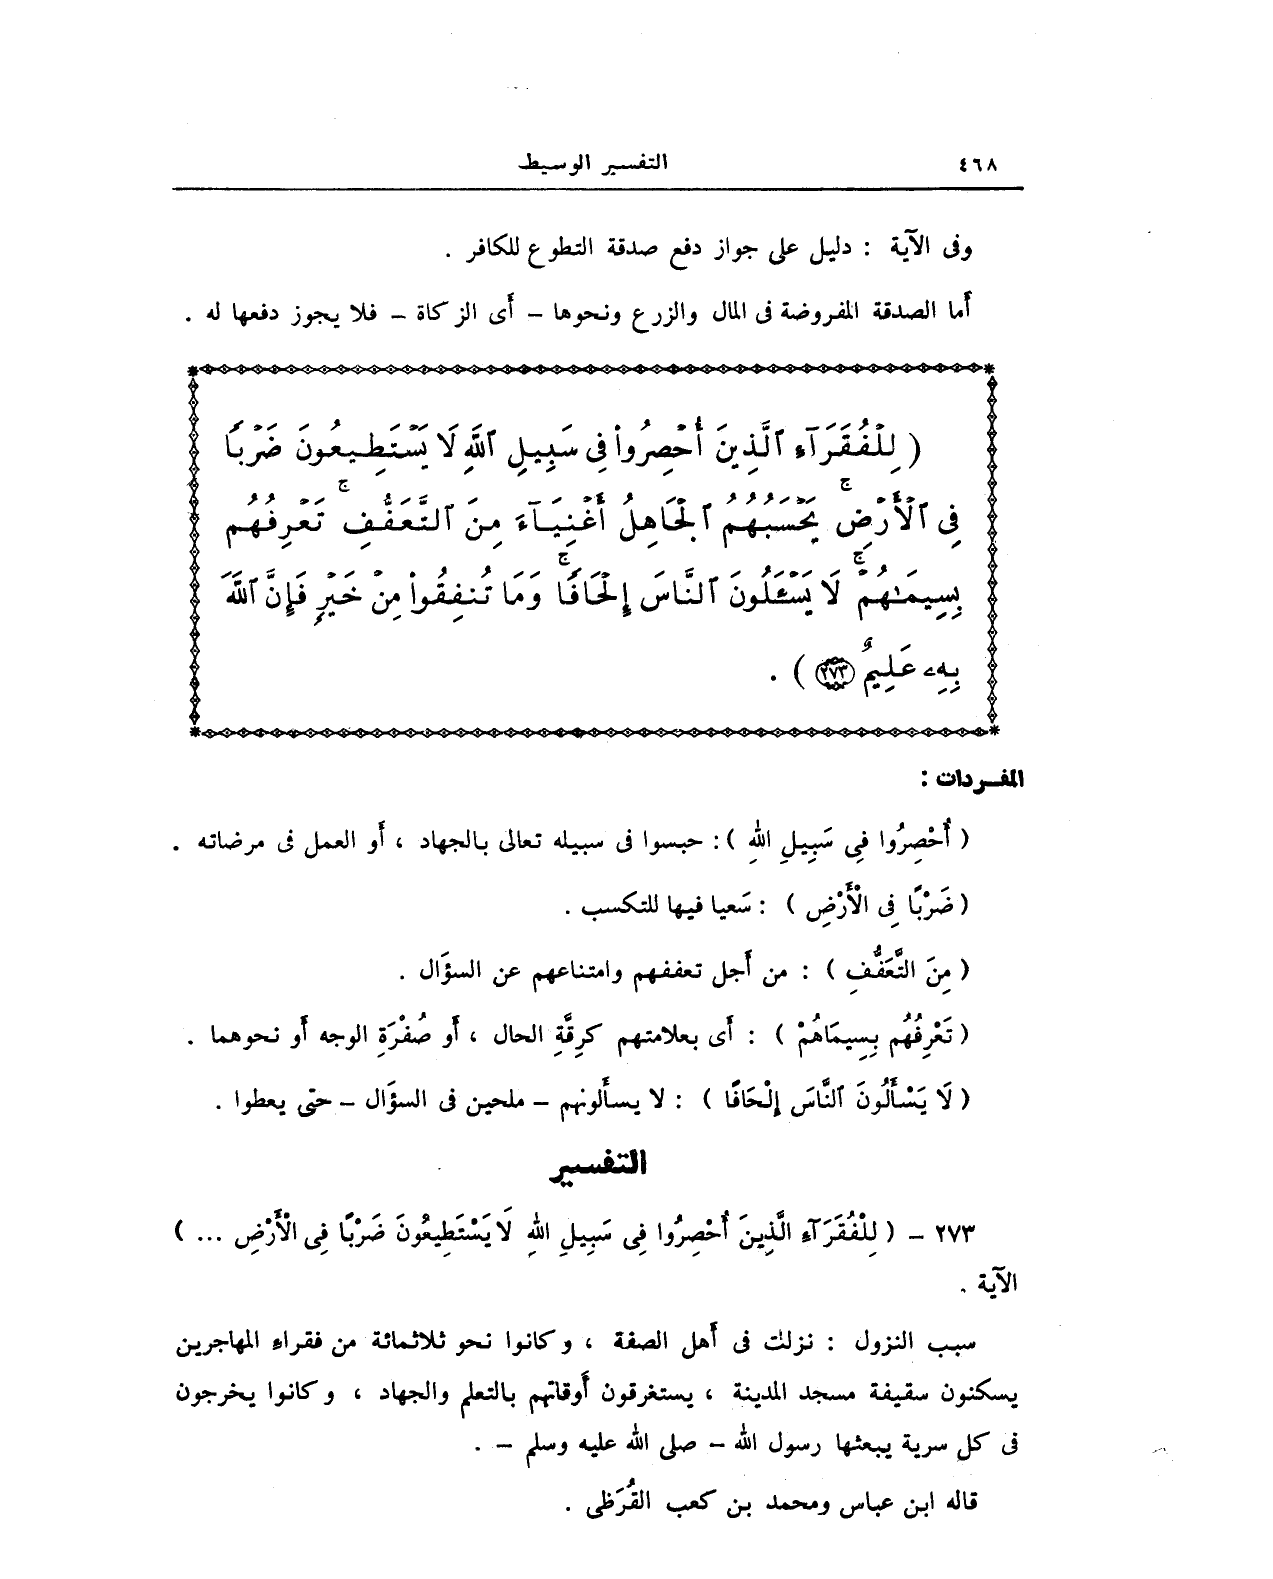 ٤٦٨ التفسير الوسيط
وفى الآية : دليل على جواز دفع صدقة التطوع للكافر .
أَما الصدقة المفروضة فى المال والزرع ونحوها – أَى الزكاة – فلا يجوز دفعها له .
( لِلْفُقَرَآءِ ٱلَّذِينَ أُحْصِرُوا۟ فِى سَبِيلِ ٱللَّهِ لَا يَسْتَطِيعُونَ ضَرْبًا
فِى ٱلْأَرْضِ ۚ يَحْسَبُهُمُ ٱلْجَاهِلُ أَغْنِيَآءَ مِنَ ٱلتَّعَفُّفِ ۚ تَعْرِفُهُم
بِسِيمَـٰهُمْ ۚ لَا يَسْـَٔلُونَ ٱلنَّاسَ إِلْحَافًا ۚ وَمَا تُنفِقُوا۟ مِنْ خَيْرٍ فَإِنَّ ٱللَّهَ
بِهِۦ عَلِيمٌ ٢٧٣ ) .
المفـردات :
( أُحْصِرُوا فِى سَبِيلِ اللهِ ) : حبسوا فى سبيله تعالى بالجهاد ، أَو العمل فى مرضاته .
( ضَرْبًا فِى الْأَرْضِ ) : سَعيا فيها للتكسب .
( مِنَ التَّعَفُّفِ ) : من أَجل تعففهم وامتناعهم عن السؤَال .
( تَعْرِفُهُم بِسِيمَاهُمْ ) : أَى بعلامتهم كرِقَّةِ الحال ، أَو صُفْرَةِ الوجه أَو نحوهما .
( لَا يَسْأَلُونَ ٱلنَّاسَ إِلْحَافًا ) : لا يسأَلونهم – ملحين فى السؤَال – حتى يعطوا .
التفسير
٢٧٣ – ( لِلْفُقَرَآءِ الَّذِينَ أُحْصِرُوا فِى سَبِيلِ اللهِ لَا يَسْتَطِيعُونَ ضَرْبًا فِى الْأَرْضِ ... )
الآية .
سبب النزول : نزلت فى أَهل الصفة ، وكانوا نحو ثلاثمائة من فقراء المهاجرين
يسكنون سقيفة مسجد المدينة ، يستغرقون أَوقاتهم بالتعلم والجهاد ، وكانوا يخرجون
فى كل سرية يبعثها رسول الله – صلى الله عليه وسلم – .
قاله ابن عباس ومحمد بن كعب القُرَظى .